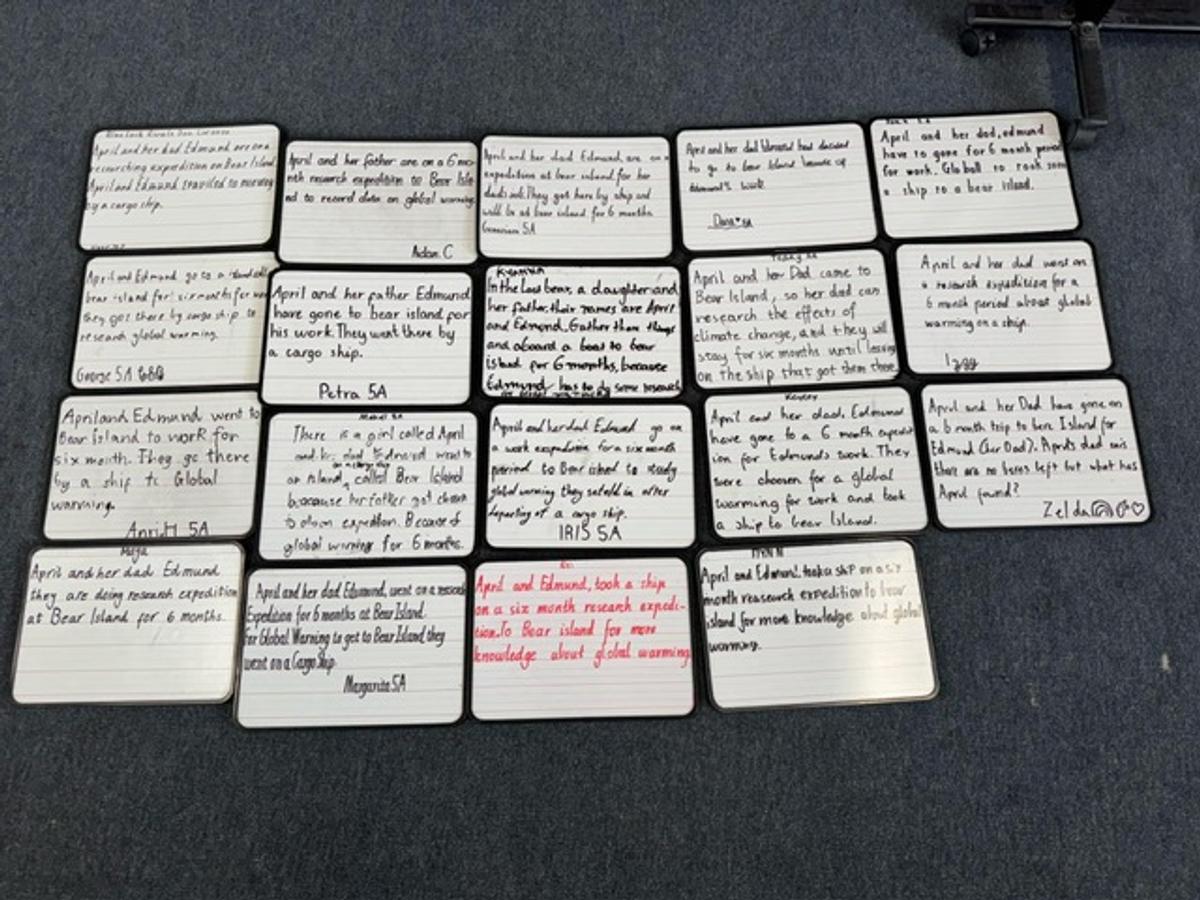 April and her dad Edmund are on a
researching expedition on Bear Island
April and Edmund traveled to norway
by a cargo ship.
April and her father are on a 6 mo-
nth research expedition to Bear Isla
nd to record data on global warming
Adan. C
April and her dad Edmund, are on a
expedition at bear island for her
dad's job. They got here by ship and
will be at bear island for 6 months
5A
April and her dad Edmund had decided
to go to bear Island because of
Edmund's work.
Dana 5A
April and her dad, edmund
have to gone for 6 month period
for work. Global to took
a ship to a bear island.
April and Edmund go to a island
bear island for six months for
they got there by cargo ship to
research global warming.
George 5A
April and her father Edmund
have gone to bear island for
his work. They want there by
a cargo ship.
Petra 5A
In the Last bear, a daughter and
her father, their names are April
and Edmond. Gather them things
and aboard a boat to bear
island for 6 months, because
Edmund has to do some research
April and her Dad came to
Bear Island, so her dad can
research the effects of
climate change, and they will
stay for six months until leaving
on the ship that got them there
April and her dad went on
a research expedition for a
6 month period about global
warming on a ship.
Izzy
April and Edmund went to
Bear Island to work for
six month. They go there
by a ship to Global
warming.
AnriH 5A
Mabel 5A
There is a girl called April
and her dad Edmund went to
an Island, called Bear Island
because her father got chosen
to do an expedition. Because of
global warming for 6 months.
April and her dad Edmund go on
a work expedition for a six month
period to Bear island to study
global warming they in after
departing of a cargo ship.
IRIS 5A
April and her dad, Edmund
have gone to a 6 month expedit
ion for Edmunds work. They
were choosen for a global
warming for work and took
a ship to bear Island.
April and her Dad have gone on
a 6 month trip to bere Island for
Edmund (her Dad). Aprils dad sais
there are no beres left but what has
April found?
Zelda
Maya
April and her dad Edmund
they are doing research expedition
at Bear Island for 6 months.
April and her dad Edmund, went on a research
Expedition for 6 months at Bear Island.
for Global Warming to get to Bear Island they
went on a Cargo Ship.
Margarita 5A
April and Edmund, took a ship
on a six month research expedi-
tion. To Bear island for more
knowledge about global warming
April and Edmund, took a ship on a six
month reasearch expedition to bear
island for more knowledge about global
warming.